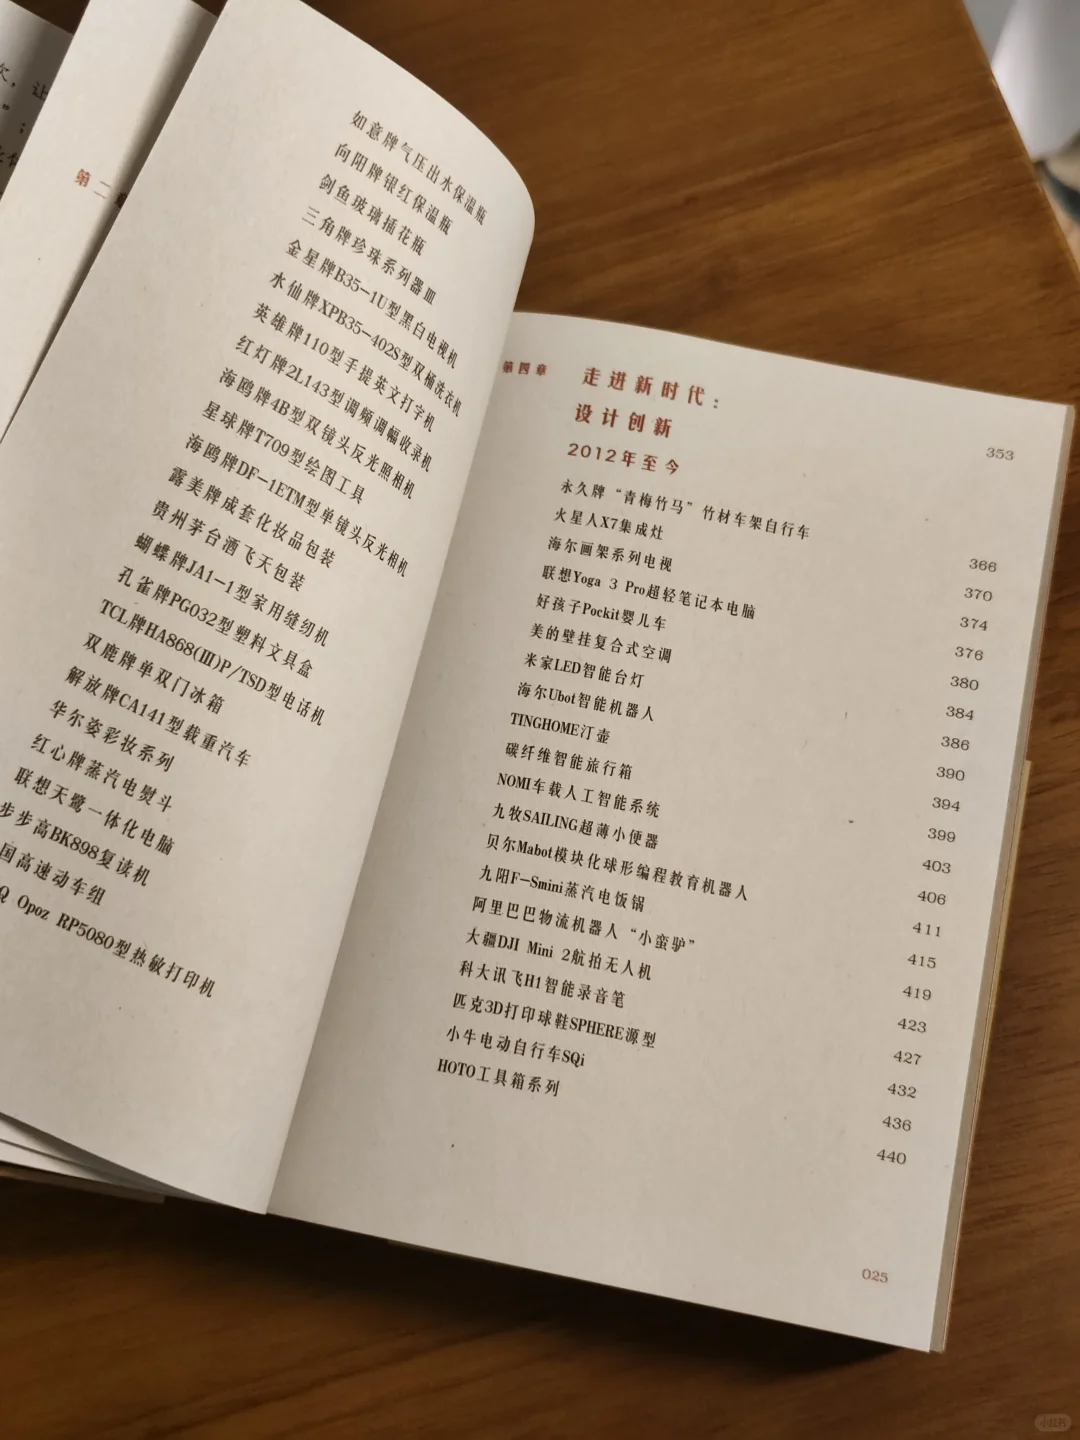 第二
如意牌气压出水保温瓶
向阳牌银红保温瓶
剑鱼玻璃插花瓶
三角牌珍珠系列器皿
金星牌B35-1U型黑白电视机
水仙牌XPB35-402S型双桶洗衣机
英雄牌110型手提英文打字机
红灯牌2L143型调频调幅收录机
海鸥牌4B型双镜头反光照相机
星球牌T709型绘图工具
海鸥牌DF-1ETM型单镜头反光相机
露美牌成套化妆品包装
贵州茅台酒飞天包装
蝴蝶牌JA1-1型家用缝纫机
孔雀牌PG032型塑料文具盒
TCL牌HA868(Ⅲ)P/TSD型电话机
双鹿牌单双门冰箱
解放牌CA141型载重汽车
华尔姿彩妆系列
红心牌蒸汽电熨斗
联想天鹭一体化电脑
步步高BK898复读机
国高速动车组
Q Opoz RP5080型热敏打印机
第四章
走进新时代：
设计创新
2012年至今
353
永久牌“青梅竹马”竹材车架自行车
366
火星人X7集成灶
370
海尔画架系列电视
374
联想Yoga 3 Pro超轻笔记本电脑
376
好孩子Pockit婴儿车
380
美的壁挂复合式空调
384
米家LED智能台灯
386
海尔Ubot智能机器人
390
TINGHOME汀壶
394
碳纤维智能旅行箱
399
NOMI车载人工智能系统
403
九牧SAILING超薄小便器
406
贝尔Mabot模块化球形编程教育机器人
411
九阳F-Smini蒸汽电饭锅
415
阿里巴巴物流机器人“小蛮驴”
419
大疆DJI Mini 2航拍无人机
423
科大讯飞H1智能录音笔
427
匹克3D打印球鞋SPHERE源型
432
小牛电动自行车SQi
436
HOTO工具箱系列
440
025
小红书